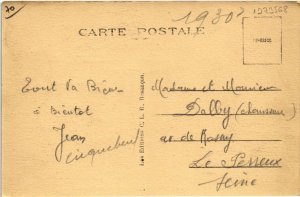 70
1930?
1273568
CARTE POSTALE
Tout Va Bien
à Bientot
Jean
Les Editions C. L. B. Besançon
Madame et Monsieur
Dolby (chaussures)
av de Rosny
Le Perreux
Seine